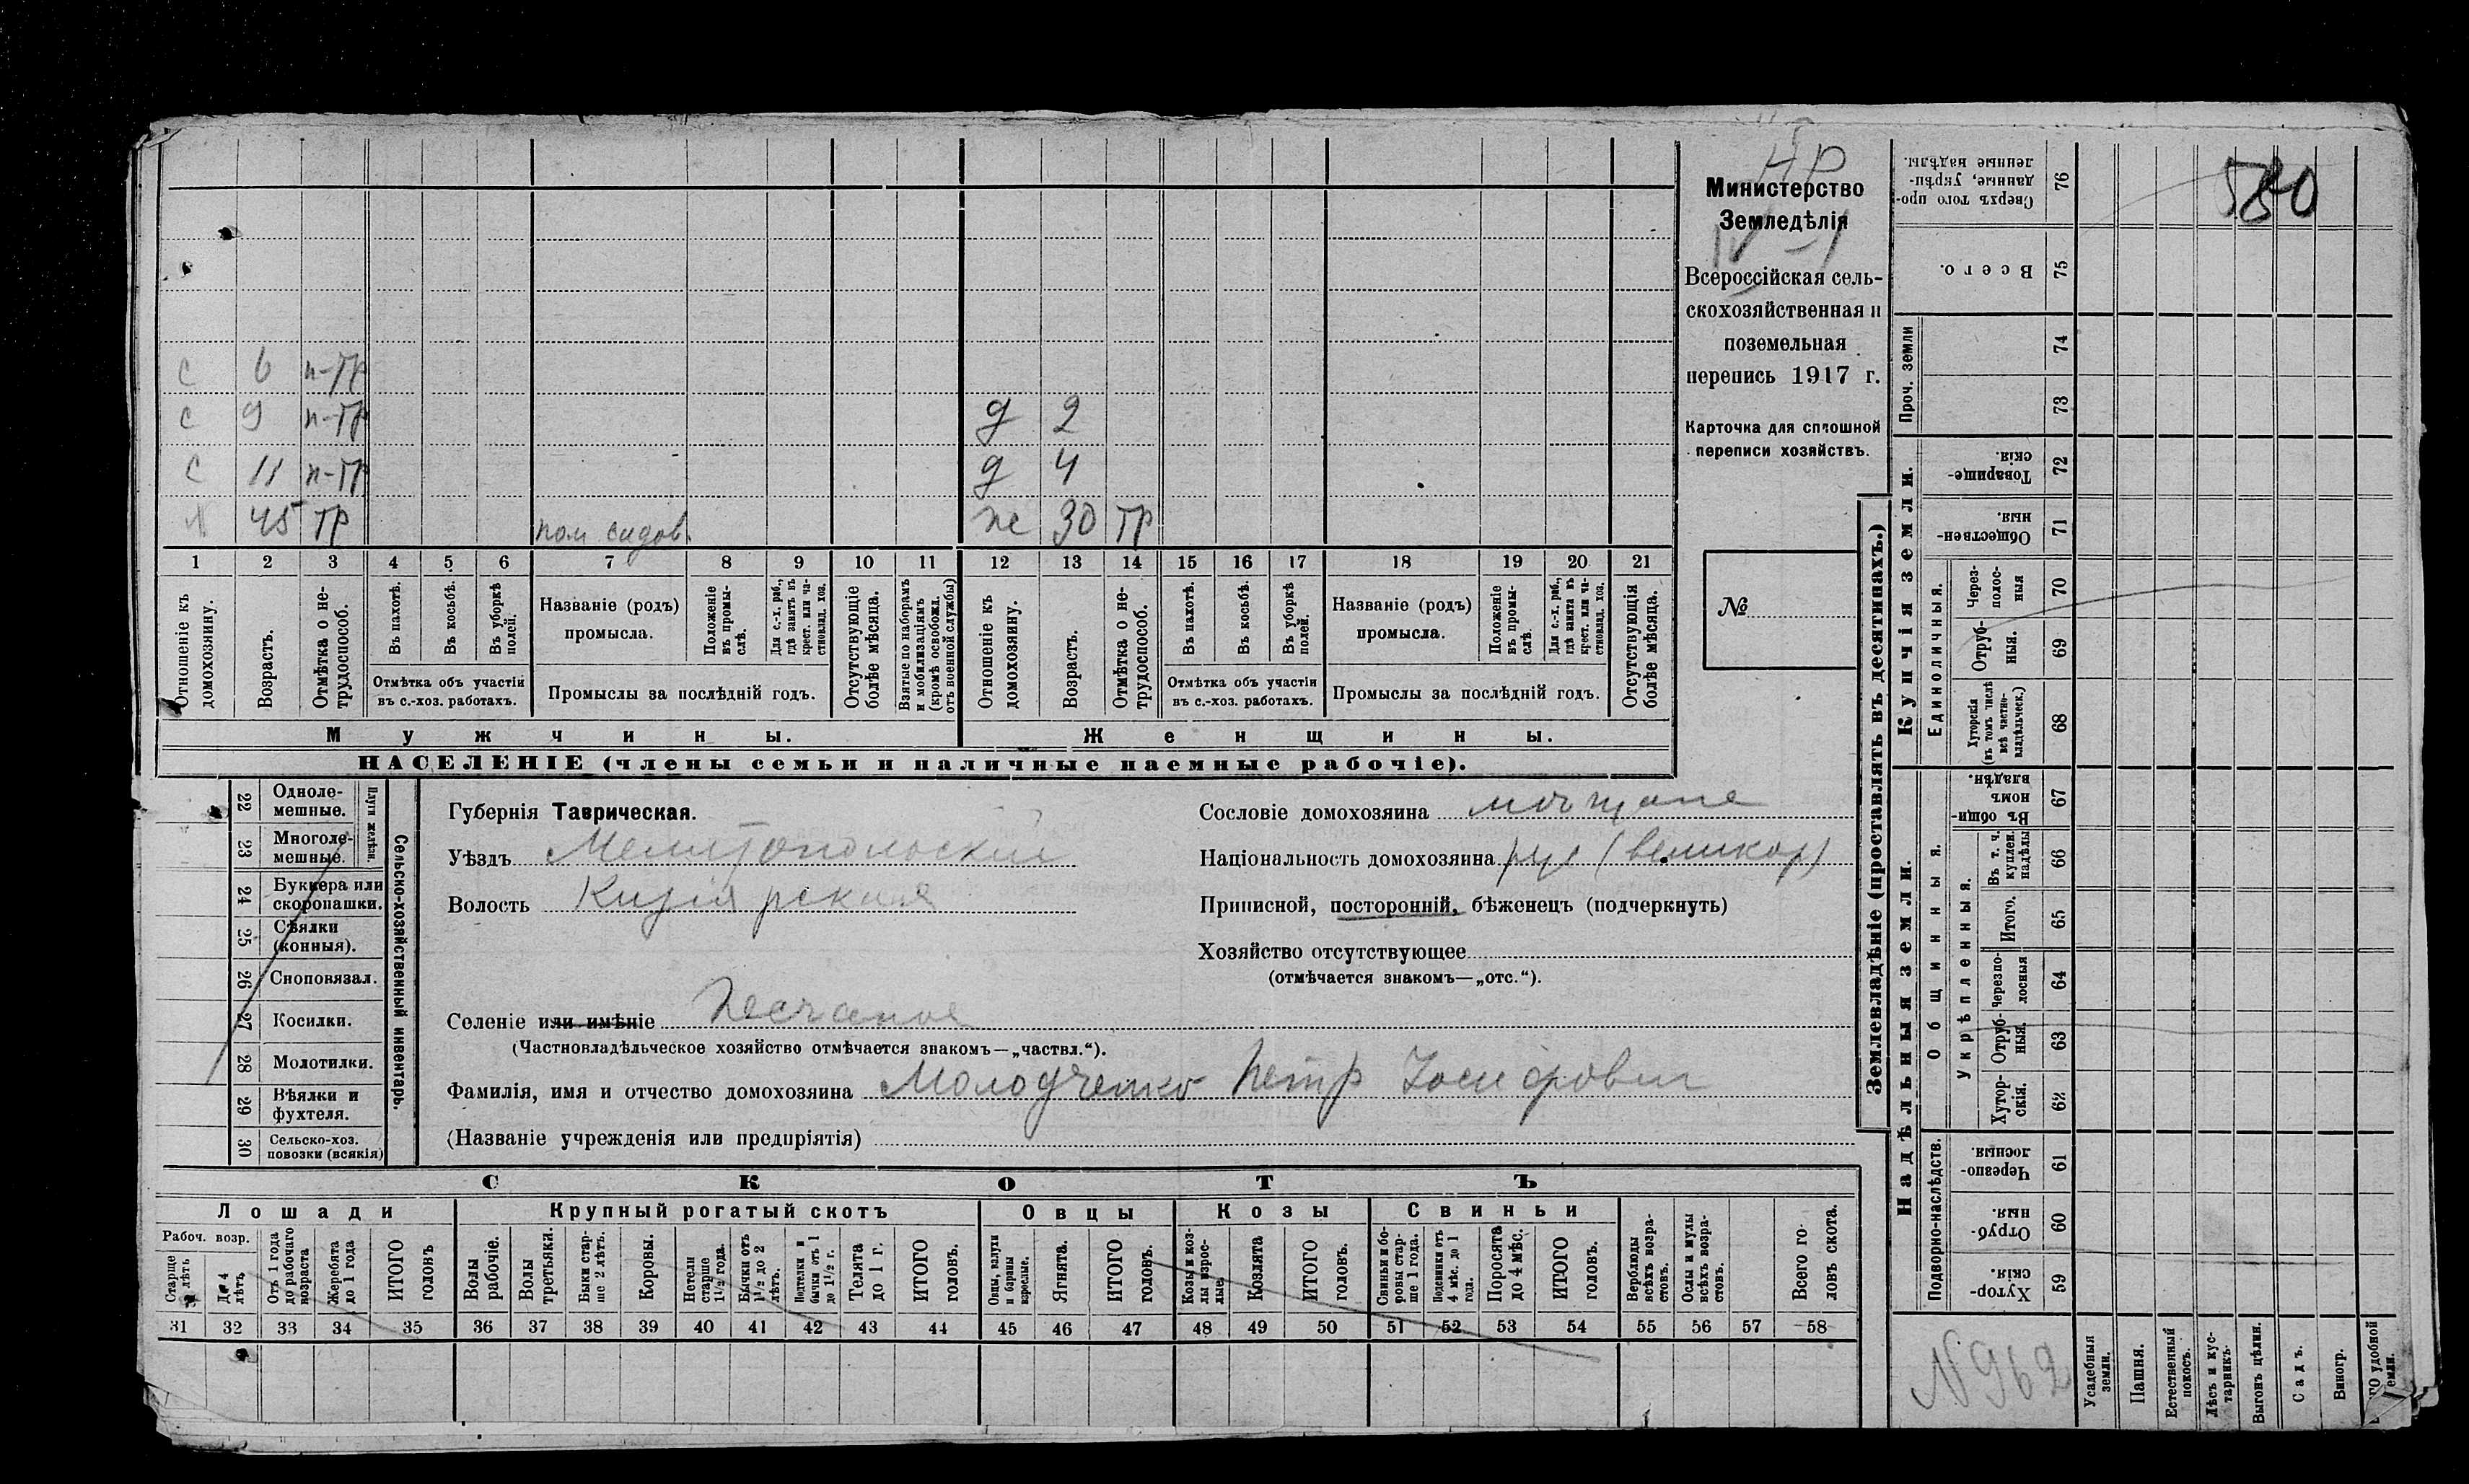 НР
Министерство
Земледѣлія
IV-1
Всероссійская сель-
скохозяйственная и
поземельная
перепись 1917 г.
Карточка для сплошной
переписи хозяйствъ.
№
с 6 н-тр
с 9 н-тр д 2
с 11 н-тр д 4
х 45 тр пом садов. ж 30 тр
1 2 3 4 5 6 7 8 9 10 11 12 13 14 15 16 17 18 19 20 21
Отношеніе къ домохозяину.
Возрастъ.
Отмѣтка о не-трудоспособ.
Въ пахотѣ.
Въ косьбѣ.
Въ уборкѣ полей.
Отмѣтка объ участіи
въ с.-хоз. работахъ.
Названіе (родъ)
промысла.
Положеніе въ промы-слѣ.
Для с.-х. раб., гдѣ занятъ въ крест. или ча-стновлад. хоз.
Промыслы за послѣдній годъ.
Отсутствующіе болѣе мѣсяца.
Взятые по наборамъ и мобилизаціямъ (кромѣ освобожд. отъ военной службы)
Отношеніе къ домохозяину.
Возрастъ.
Отмѣтка о не-трудоспособ.
Въ пахотѣ.
Въ косьбѣ.
Въ уборкѣ полей.
Отмѣтка объ участіи
въ с.-хоз. работахъ.
Названіе (родъ)
промысла.
Положеніе въ промы-слѣ.
Для с.-х. раб., гдѣ занята въ крест. или ча-стновлад. хоз.
Промыслы за послѣдній годъ.
Отсутствующія болѣе мѣсяца.
Мужчины.
Женщины.
НАСЕЛЕНІЕ (члены семьи и наличные наемные рабочіе).
22 Одноле-мешные.
23 Многоле-мешные.
Плуги желѣзн.
24 Буккера или скоропашки.
25 Сѣялки (конныя).
26 Сноповязал.
27 Косилки.
28 Молотилки.
29 Вѣялки и фухтеля.
30 Сельско-хоз. повозки (всякія)
Сельско-хозяйственный инвентарь.
Губернія Таврическая.
Уѣздъ Мелитопольскій
Волость Кизіярская
Сословіе домохозяина мѣщане
Національность домохозяина рус (великор)
Приписной, посторонній, бѣженецъ (подчеркнуть)
Хозяйство отсутствующее
(отмѣчается знакомъ—„отс.“).
Селеніе или имѣніе Песчаное
(Частновладѣльческое хозяйство отмѣчается знакомъ—„частвл.“).
Фамилія, имя и отчество домохозяина Молодченко Петр Іосифович
(Названіе учрежденія или предпріятія)
СКОТЪ
Лошади
Крупный рогатый скотъ
Овцы
Козы
Свиньи
Рабоч. возр.
Старше 4 лѣтъ
До 4 лѣтъ
Отъ 1 года до рабочаго возраста
Жеребята до 1 года
ИТОГО головъ
Волы рабочіе.
Волы третьяки.
Быки стар-ше 2 лѣтъ.
Коровы.
Нетели старше 1½ года.
Бычки отъ 1½ до 2 лѣтъ.
Подтелки и бычки отъ 1 до 1½ г.
Телята до 1 г.
ИТОГО головъ.
Овцы, валухи и бараны взрослые.
Ягнята.
ИТОГО головъ.
Козы и коз-лы взрос-лые.
Козлята
ИТОГО головъ.
Свиньи и бо-ровы стар-ше 1 года.
Подсвинки отъ 4 мѣс. до 1 года.
Поросята до 4 мѣс.
ИТОГО головъ.
Верблюды всѣхъ возра-стовъ.
Ослы и мулы всѣхъ возра-стовъ.
Всего го-ловъ скота.
31 32 33 34 35 36 37 38 39 40 41 42 43 44 45 46 47 48 49 50 51 52 53 54 55 56 57 58
Землевладѣніе (проставлять въ десятинахъ.)
Купчія земли.
Надѣльныя земли.
580
76 Сверхъ того про-данные, укрѣп-ленные надѣлы.
75 Всего.
Проч. земли
74
73
72 Товарище-скія.
71 Обществен-ныя.
Единоличныя.
70 Через-полос-ныя
69 Отруб-ныя.
68 Хуторскія (въ томъ числѣ всѣ частно-владѣльческ.)
Общинныя.
67 Въ общи-номъ владѣн.
Укрѣпленныя.
66 Въ т. ч. куплен. надѣлы
65 Итого.
64 Черезпо-лосныя
63 Отруб-ныя.
62 Хутор-скія.
Подворно-наслѣдств.
61 Черезпо-лосныя.
60 Отруб-ныя.
59 Хутор-скія.
N 962
Усадебныя земли.
Пашня.
Естественный покосъ.
Лѣсъ и кус-тарникъ.
Выгонъ цѣлин.
Садъ.
Виногр.
удобной земли.